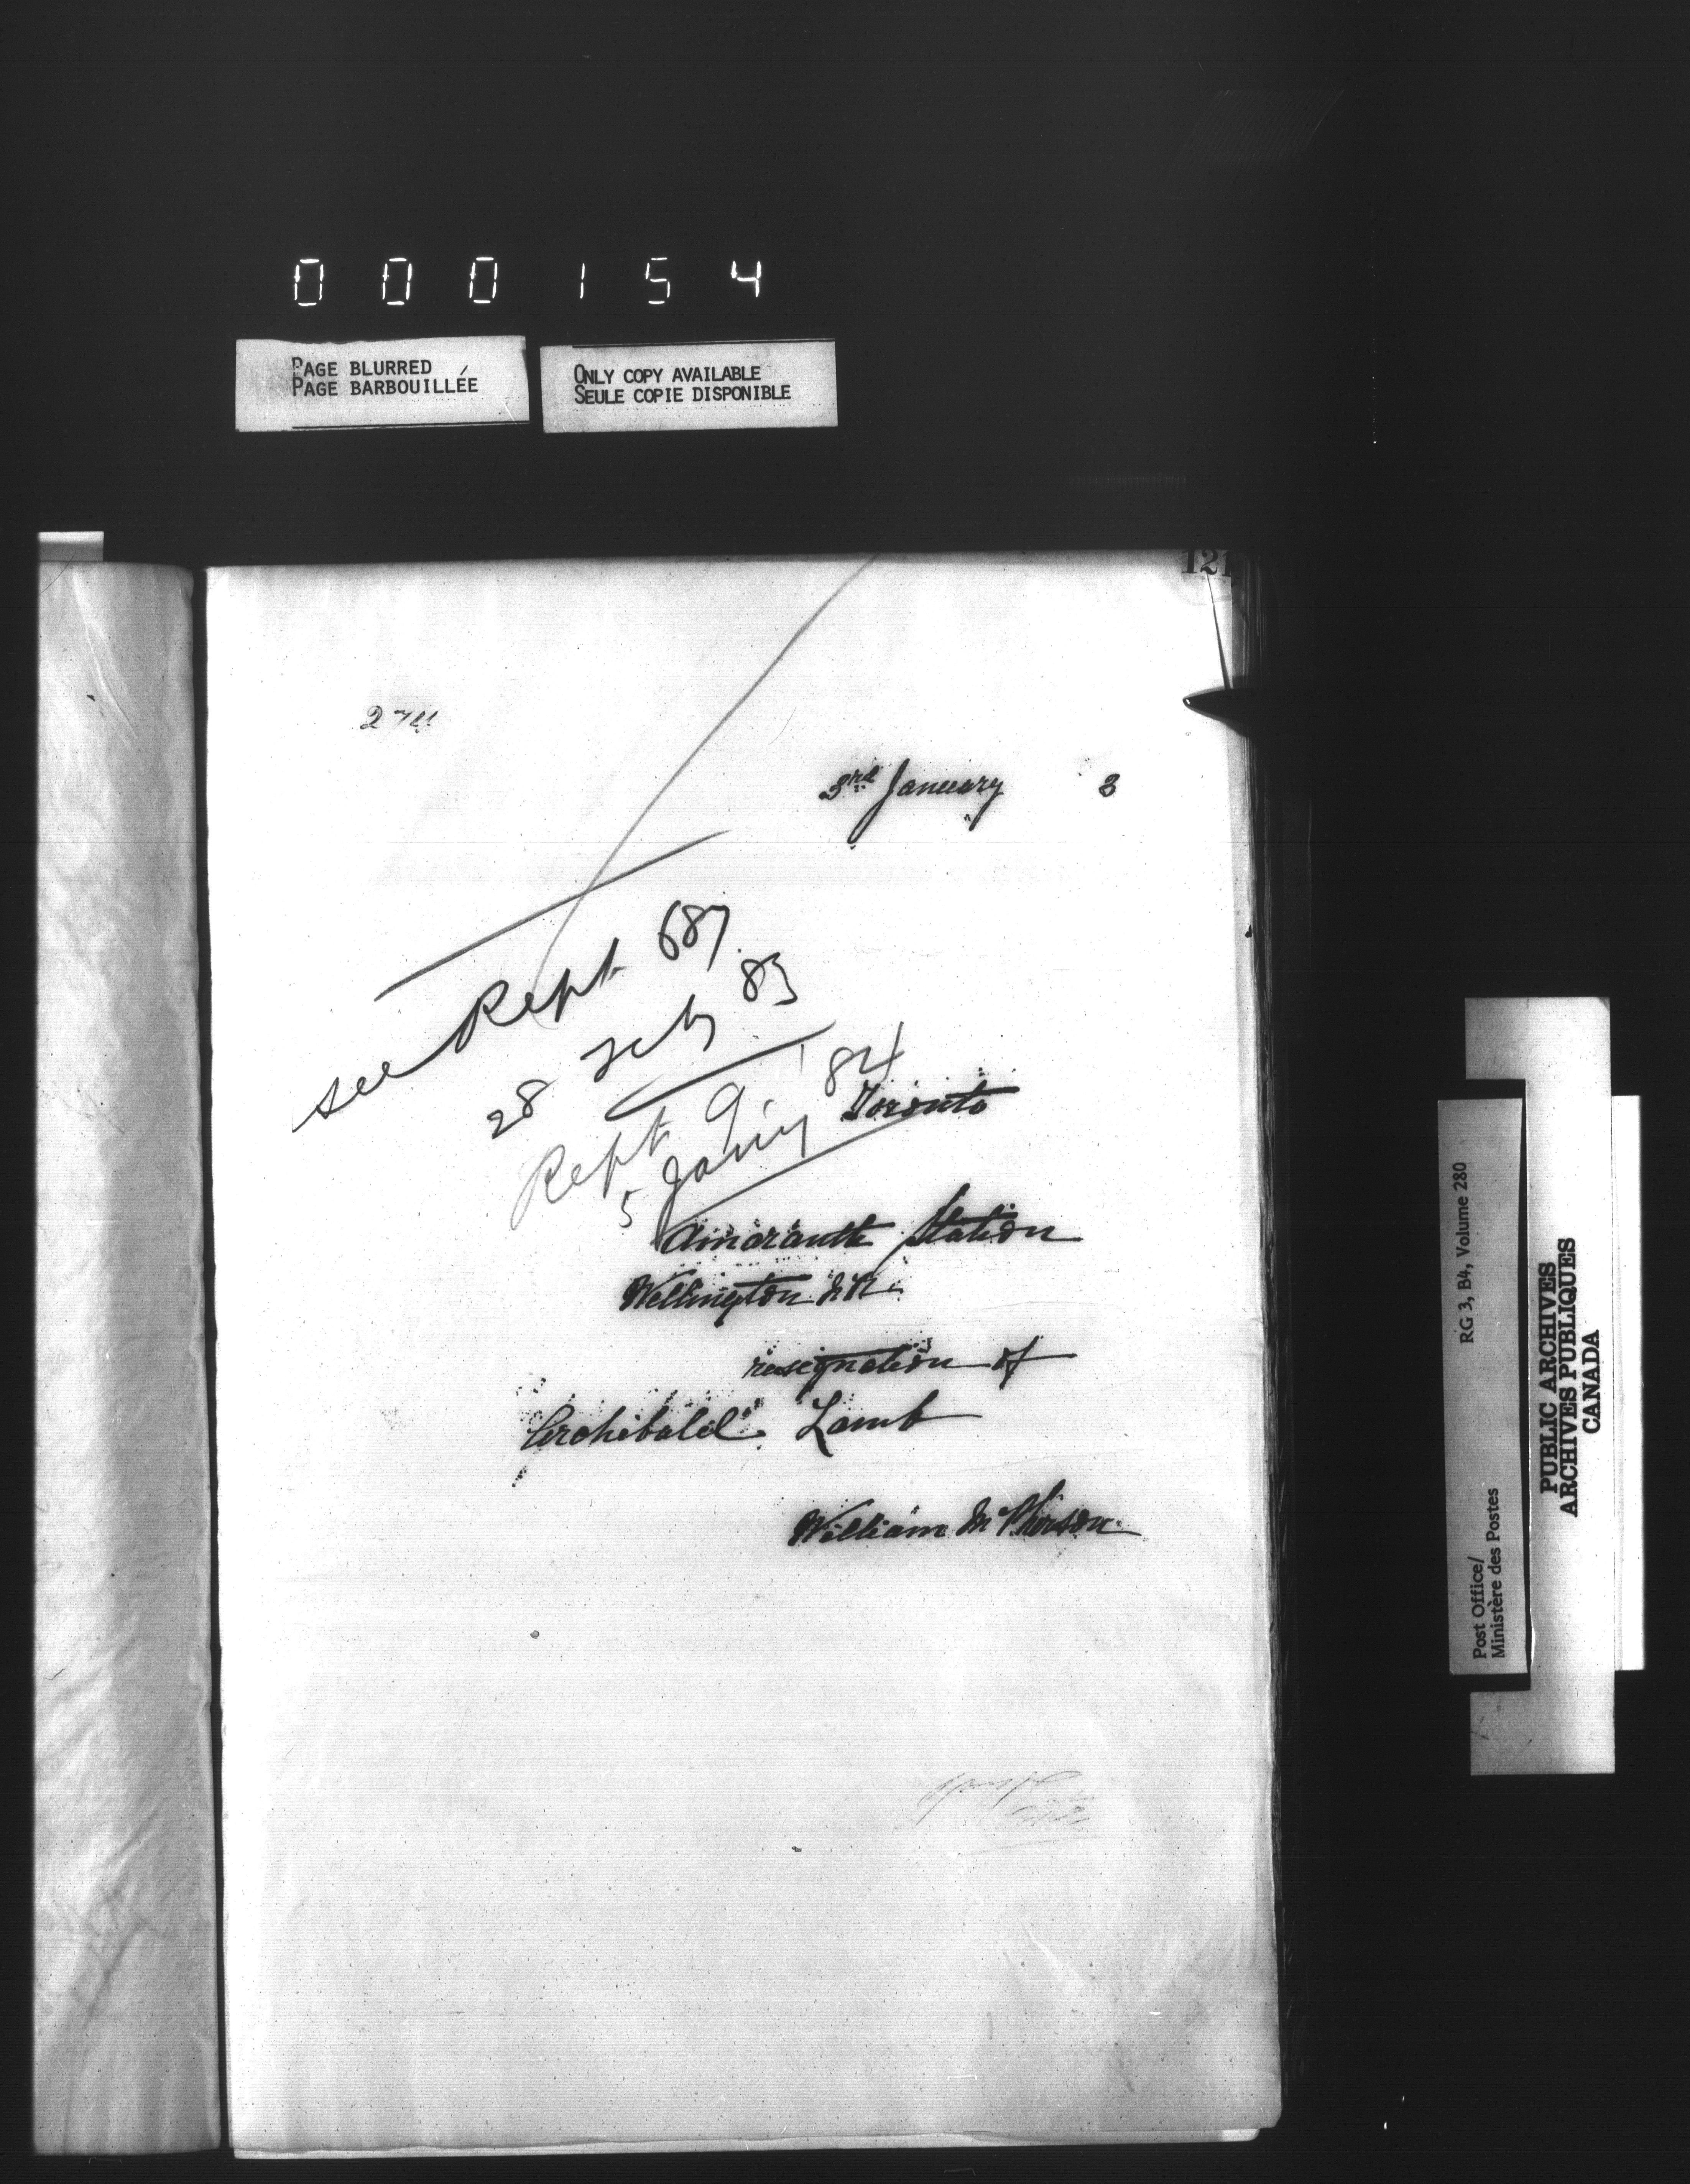 000154
PAGE BLURRED
PAGE BARBOUILLÉE
ONLY COPY AVAILABLE
SEULE COPIE DISPONIBLE
121
3rd January 3
see Rept 687
28 Feby 83
Rept 9 '84
5 Jany
Toronto
Amaranth Station
Wellington N.R.
resignation of
Archibald Lamb
William McPherson
Post Office/
Ministère des Postes
RG 3, B4, Volume 280
PUBLIC ARCHIVES
ARCHIVES PUBLIQUES
CANADA